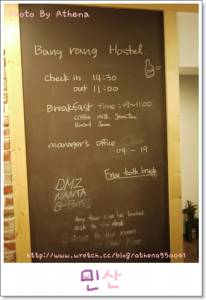 Photo By Athena
Bang rang Hostel
Check in 14:30
out 11:00
Breakfast Time :09~11:00
coffee milk Jam
Bread
manager's office
09 - 19
Free tooth brush
DMZ
NANTA
Any tour can be booked
ask to the desk
to the room
http://www.wretch.cc/blog/athena950001
민산